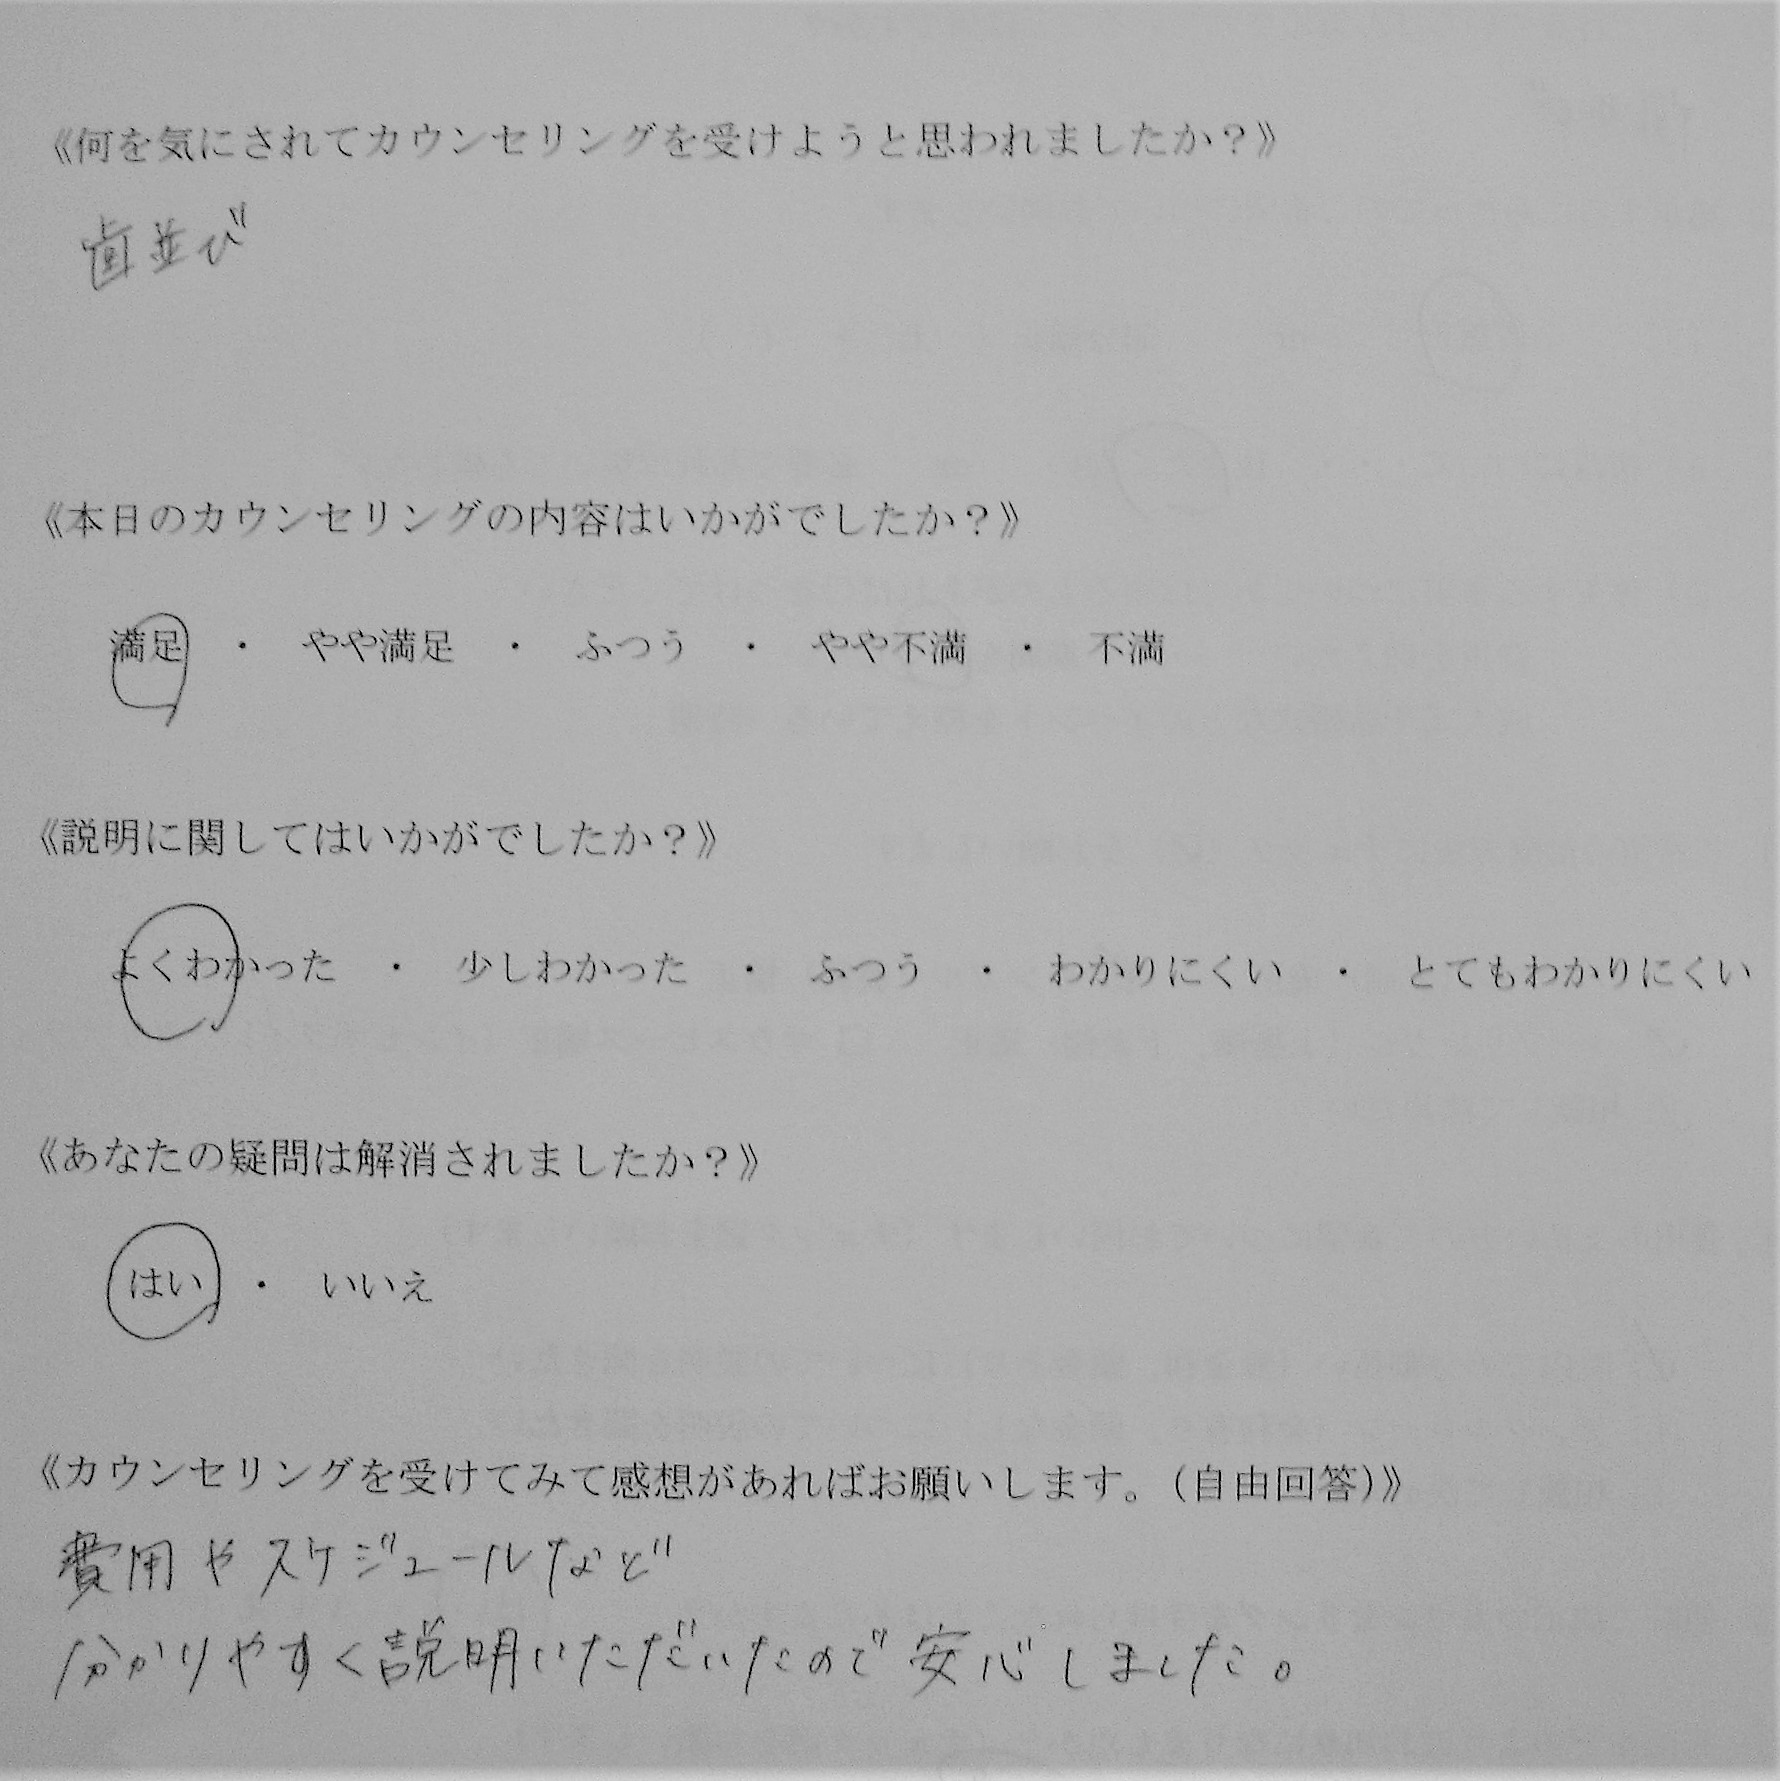 《何を気にされてカウンセリングを受けようと思われましたか？》
歯並び
《本日のカウンセリングの内容はいかがでしたか？》
満足　・　やや満足　・　ふつう　・　やや不満　・　不満
《説明に関してはいかがでしたか？》
よくわかった　・　少しわかった　・　ふつう　・　わかりにくい　・　とてもわかりにくい
《あなたの疑問は解消されましたか？》
はい　・　いいえ
《カウンセリングを受けてみて感想があればお願いします。（自由回答）》
費用やスケジュールなど
分かりやすく説明いただいたので安心しました。